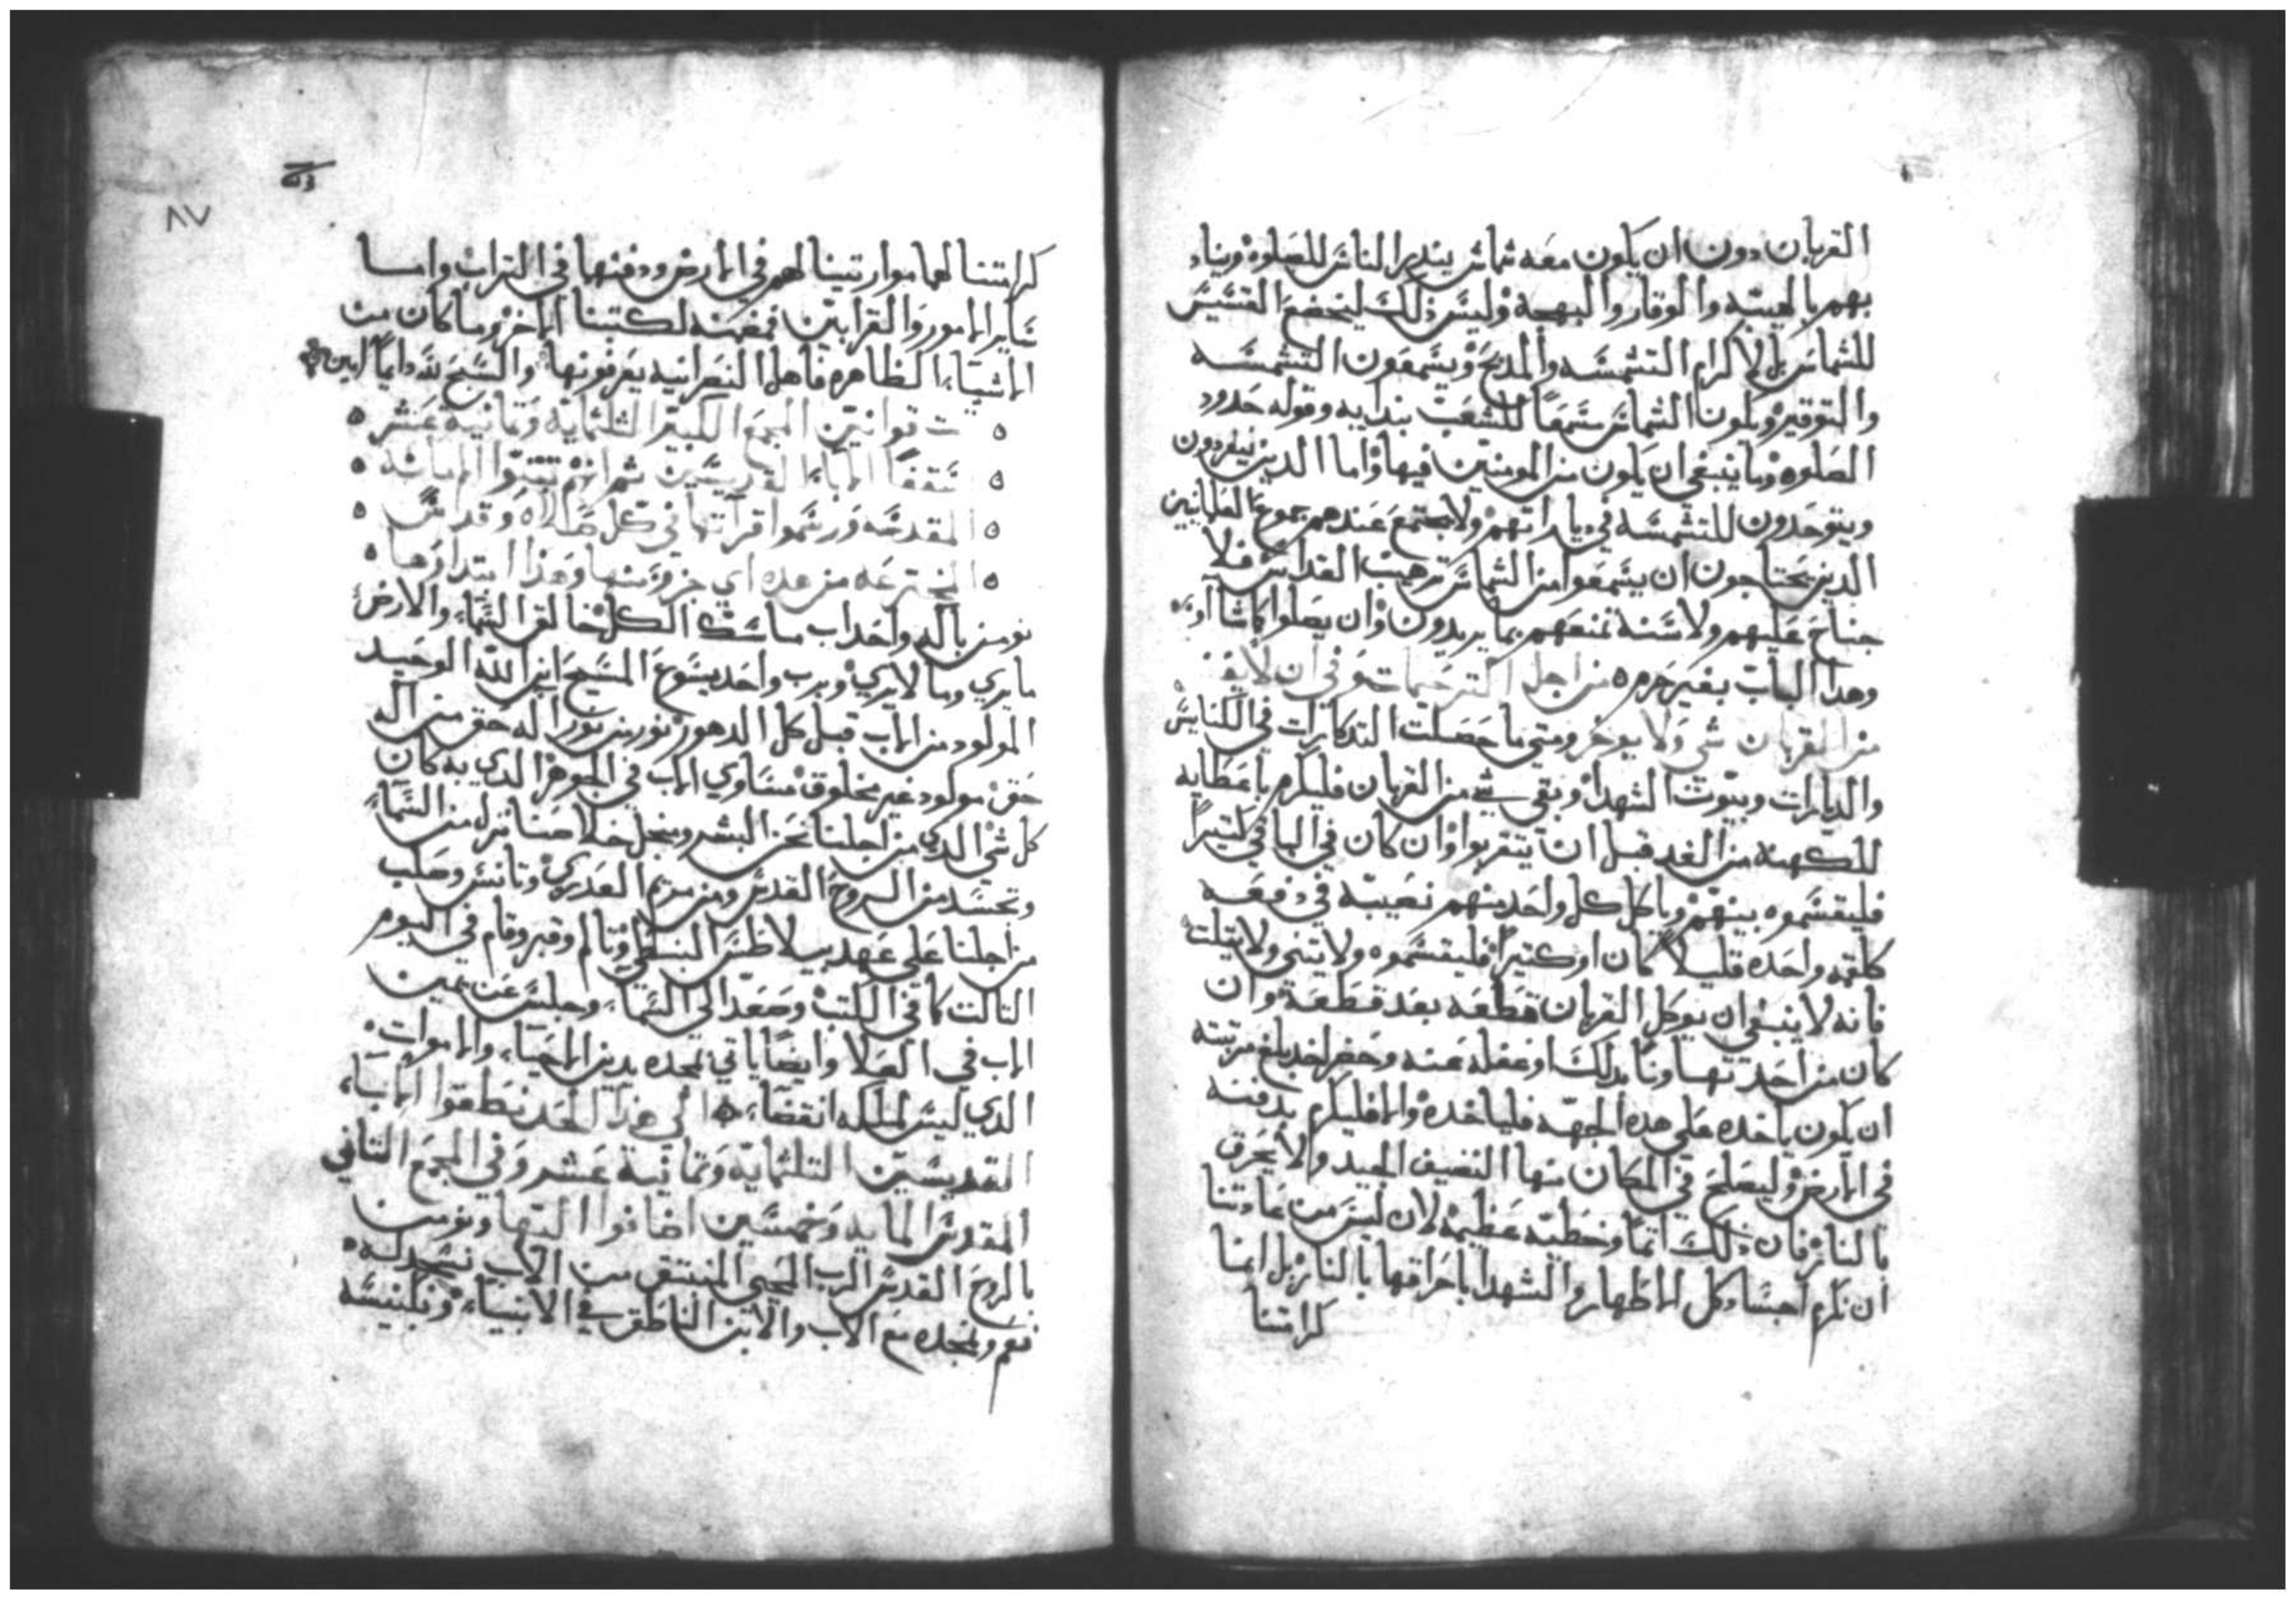 القربان دون ان يكون معه شماس ينذر الناس للصلوه ويناد
بهم بالهيبه والوقار والبهجة وليس ذلك ليخضع القسيس
للشماس بل لاكرام التشمسه والمذبح ويسمعون التشمسه
والتوقير ويكون الشماس سمعاً للشعب بندايه وقوله حدود
الصلوه وما ينبغي ان يكون من المومنين فيها واما الدين ينفردون
ويتوحدون للتشمسه في دياراتهم ولا يجتمع عندهم جموع العلمانيين
الدين يحتاجون ان يسمعوا من الشماس ترهيب القداس فلا
جناح عليهم ولا سنة تمنعهم بما يريدون وان يصلوا كماشا
وهدا الباب بغير حرم من اجل الترحيمات وفي ان لا
من القربان شي ولا يوخر ومتي ما حصلت التدكارات في الكنايس
والديارات وبيوت الشهدا وبقي شي من القربان فليكرم باعطايه
للكهنة من الغد قبل ان يتقربوا وان كان في الباقي كتيراً
فليقسموه بينهم وياكل كل واحد منهم نصيبه في دفعه
كلقمه واحده قليلا كان او كتيراً فليقسموه ولا يتنى ولا يتلت
فانه لا ينبغي ان يوكل القربان قطعه بعد قطعة وان
كان من احد تهاوناً بدلك او غفله عنه وحضر احد بلغ مرتبته
ان يكون ياخده على هده الجهه فلياخده والا فليكرم بدفنه
في الارض وليصلح في المكان منها النضيف الجيد ولا يحرق
بالنار فان ذلك اتماً وخطيه عظيمه لان ليس من عادتنا
ان نكرم اجساد كل الاطهار والشهدا باحراقها بالنار بل انما
كرامتنا
٨٧
كرامتنا لهما مواريتنا لهم في الارض ودفنها في التراب واما
ساير الامور والقرابين فمضمنه لكتبنا الاخر وما كان من
الاشياء الظاهره فاهل النصرانيه يعرفونها والسبح لله دايماً امين
ت قوانين المجمع الكبير الثلثماية وتمانية عشر
سقفاً الاباء القديسين ثم انهم تبتوا الامانه
المقدسه ورسموا قرآتها في كل صلاة وقداس
المخترعه من هده اي جزو منها وهذا ابتداوها
نومن باله واحد اب ماسك الكل خالق السماء والارض
ما يري وما لا يري وبرب واحد يسوع المسيح ابن الله الوحيد
المولود من الاب قبل كل الدهور نور من نور اله حق من اله
حق مولود غير مخلوق مساوي الاب في الجوهر الدي به كان
كل شي الدي من اجلنا نحن البشر ومنجل خلاصنا نزل من السماء
وتجسد من الروح القدس ومن مريم العدري وتانس وصلب
من اجلنا علي عهد بيلاطس البنطي وتالم وقبر وقام في اليوم
التالت كما في الكتب وصعد الي السماء وجلس عن يمين
الاب في العلا وايضاً ياتي بمجده يدين الاحياء والاموات
الدي ليس لملكه انقضاء الي هذا الحد نطقوا الاباء
القديسين التلثماية وتمانية عشر وفي المجمع التاني
المقدس المايه وخمسين اضافوا اليها ونومن
بالروح القدس الرب المحيي المنبثق من الآب نسجد له
نعم ونمجده مع الآب والابن الناطق في الانبياء وبكنيسه